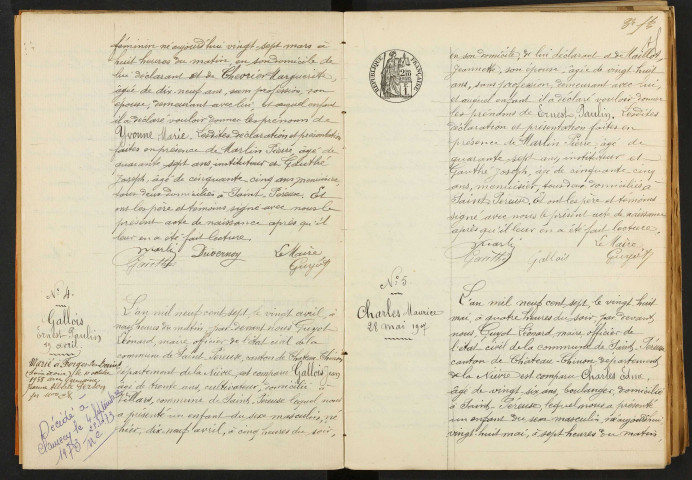 féminin né aujourd'hui vingt-sept mars à
huit heures du matin, en son domicile de
lui déclarant et de Chevrier Marguerite
âgée de dix neuf ans, sans profession, son
épouse, demeurant avec lui, et auquel enfant
il a déclaré vouloir donner les prénoms de
Yvonne Marie. Lesdites déclaration et présentation
faites en présence de Marlin Pierre, âgé de
quarante sept ans, instituteur et Gauthé
Joseph, âgé de cinquante cinq ans,
tous deux domiciliés à Saint Péreuse. Et
ont les père et témoins signé avec nous le
présent acte de naissance après qu'il
leur en a été fait lecture.
Marlin Duvernoy Le Maire
Gauthé Guyot
N° 4.
Gallois
Ernest Paulin
19 avril
Marié à
Décédé à
le
1973
L'an mil neuf cent sept, le vingt avril, à
heures du matin, par devant nous Guyot
Léonard, maire officier de l'état civil de la
commune de Saint Péreuse, canton de Château Chinon
département de la Nièvre, est comparu Gallois Jean
âgé de trente ans, cultivateur, domicilié à
Mars, commune de Saint Péreuse lequel nous
a présenté un enfant du sexe masculin, né
hier, dix neuf avril, à cinq heures du soir,
REPUBLIQUE FRANÇAISE
en son domicile, de lui déclarant et de
Jeannette, son épouse, âgée de vingt huit
ans, sans profession, demeurant avec lui,
et auquel enfant il a déclaré vouloir donner
les prénoms de Ernest Paulin. Lesdites
déclaration et présentation faites en
présence de Marlin Pierre, âgé de
quarante sept ans, instituteur et
Gauthé Joseph, âgé de cinquante cinq
ans, menuisier, tous deux domiciliés à
Saint Péreuse. Et ont les père et témoins
signé avec nous le présent acte de naissance
après qu'il leur en a été fait lecture.
Marlin Le Maire
Gauthé Gallois Guyot
N° 5
Charles Maurice
28 mai 1907
L'an mil neuf cent sept, le vingt huit
mai, à quatre heures du soir, par devant
nous, Guyot Léonard maire officier de
l'état civil de la commune de Saint Péreuse
canton de Château-Chinon département
de la Nièvre est comparu Charles Edme,
âgé de vingt-six ans, boulanger, domicilié
à Saint Péreuse, lequel nous a présenté
un enfant du sexe masculin, né aujourd'hui
vingt-huit mai, à sept heures du matin,